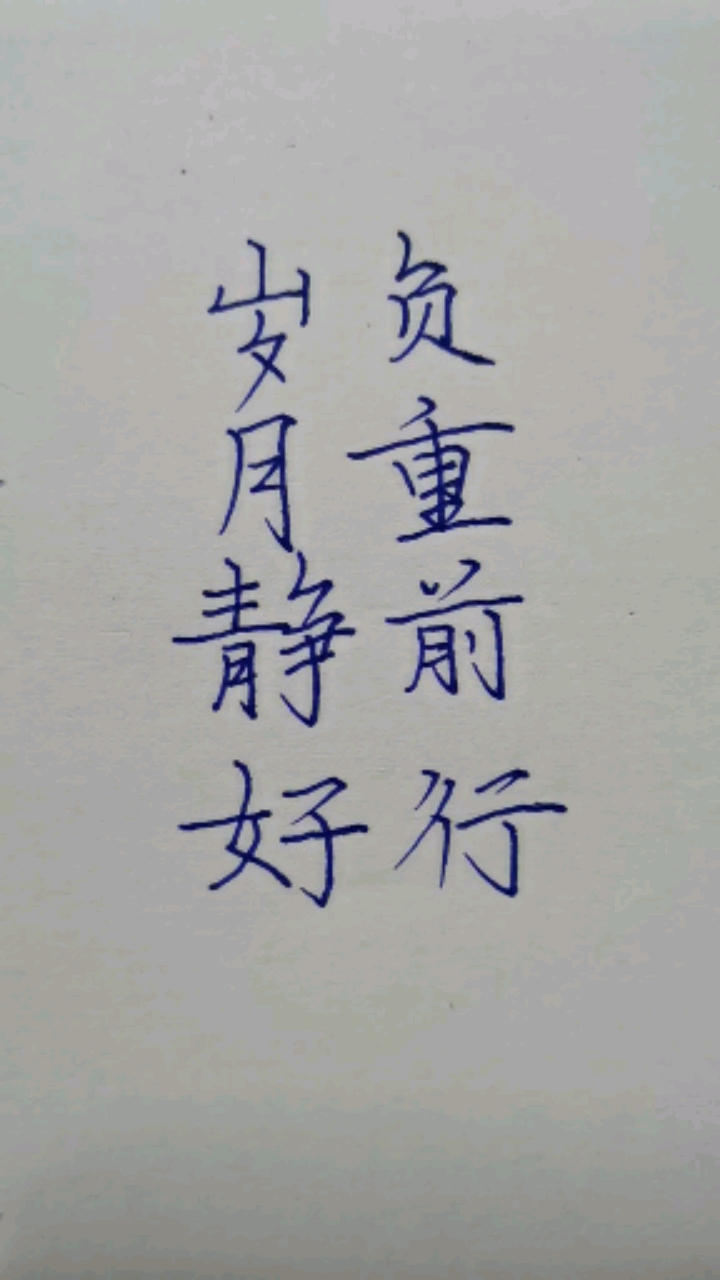 负重前行
岁月静好